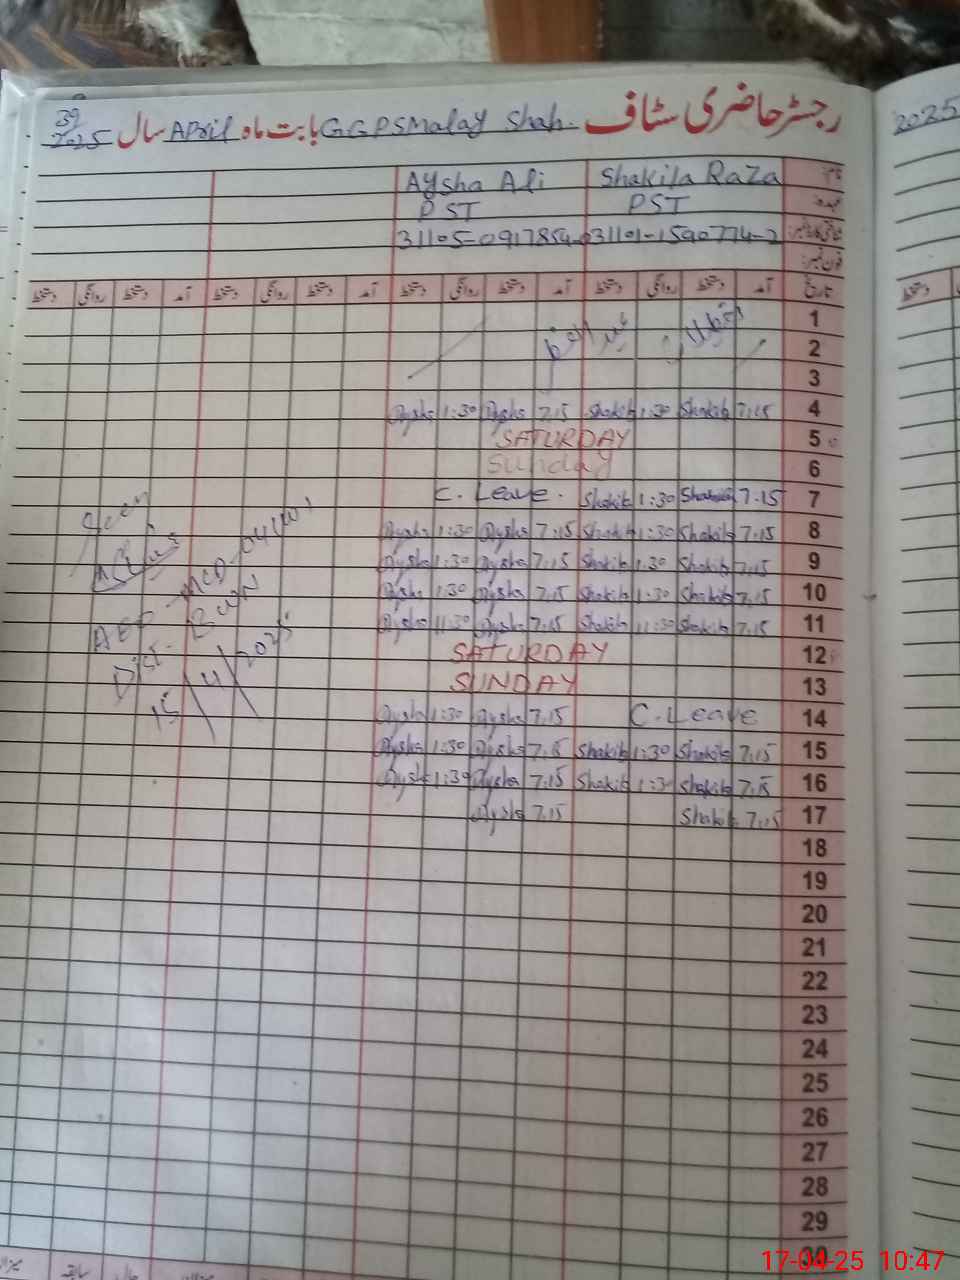 رجسٹر حاضری سٹاف GGPSMalay Shah. بابت ماہ APril سال 2025
39
2025
نام Shakila Raza Aysha Ali
عہدہ PST PST
شناختی کارڈ نمبر 31101-1590774-2 31105-0917854-0
فون نمبر:
تاریخ آمد دستخط روانگی دستخط آمد دستخط روانگی دستخط آمد دستخط روانگی دستخط آمد دستخط روانگی دستخط
1
2 عید الفطر
3
4 7.15 Shakila 1:30 Shakila 7.15 Aysha 1:30 Aysha
5 SATURDAY
6 Sunday
7 7.15 Shakila 1:30 Shakila C. Leave.
8 7.15 Shakila 1:30 Shakila 7.15 Aysha 1:30 Aysha
9 7.15 Shakila 1.30 Shakila 7.15 Aysha 1:30 Aysha
10 7.15 Shakila 1:30 Shakila 7.15 Aysha 1:30 Aysha
11 7.15 Shakila 11:30 Shakila 7.15 Aysha 11:30 Aysha
12 SATURDAY
13 SUNDAY
14 C. Leave 7.15 Aysha 1:30 Aysha
15 7.15 Shakila 1:30 Shakila 7.15 Aysha 1:30 Aysha
16 7.15 Shakila 1:30 Shakila 7.15 Aysha 1:30 Aysha
17 7.15 Shakila 7.15 Aysha
18
19
20
21
22
23
24
25
26
27
28
29
30
Seen
Dist- BWN
15/4/2025
میزان سابقہ حال میزان
17-04-25 10:47